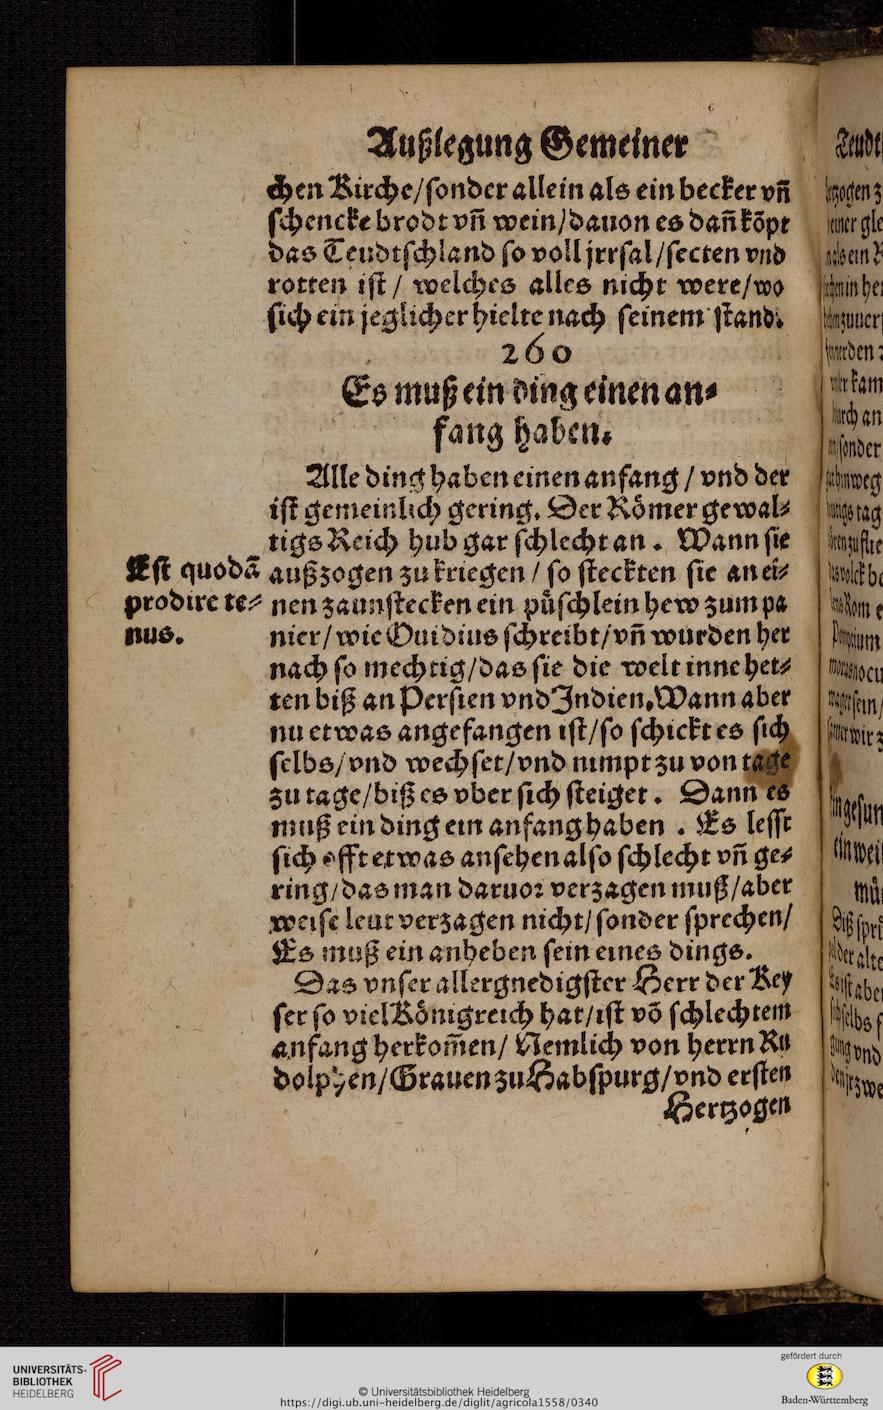 Außlegung Gemeiner
chen Kirche/ſonder allein als ein becker vñ
ſchencke brodt vñ wein/dauon es dañ kõpt
das Teudtſchland ſo voll jrrſal/ſecten vnd
rotten iſt / welches alles nicht were/wo
ſich ein jeglicher hielte nach ſeinem ſtand.
260
Es muß ein ding einen an⸗
fang haben.
Alle ding haben einen anfang / vnd der
iſt gemeinlich gering. Der Roͤmer gewal⸗
tigs Reich hub gar ſchlecht an . Wann ſie
außzogen zu kriegen / ſo ſteckten ſie an ei⸗
Eſt quodã
prodire te⸗
nus.
nen zaunſtecken ein puͤſchlein hew zum pa
nier/wie Ouidius ſchreibt/vñ wurden her
nach ſo mechtig/das ſie die welt inne het⸗
ten biß an Perſien vnd Indien. Wann aber
nu etwas angefangen iſt/ſo ſchickt es ſich
ſelbs/vnd wechſet/vnd nimpt zu von tage
zu tage/biß es vber ſich ſteiget . Dann es
muß ein ding ein anfang haben . Es leſſt
ſich offt etwas anſehen alſo ſchlecht vñ ge⸗
ring/das man daruor verzagen muß/aber
weiſe leut verzagen nicht/ſonder ſprechen/
Es muß ein anheben ſein eines dings.
Das vnſer allergnedigſter Herr der Key
ſer ſo viel Koͤnigreich hat/iſt võ ſchlechtem
anfang herkom̃en/ Nemlich von herrn Ru
dolphen/Grauen zu Habſpurg/vnd erſten
Hertzogen
UNIVERSITÄTS-
BIBLIOTHEK
HEIDELBERG
© Universitätsbibliothek Heidelberg
https://digi.ub.uni-heidelberg.de/diglit/agricola1558/0340
gefördert durch
Baden-Württemberg